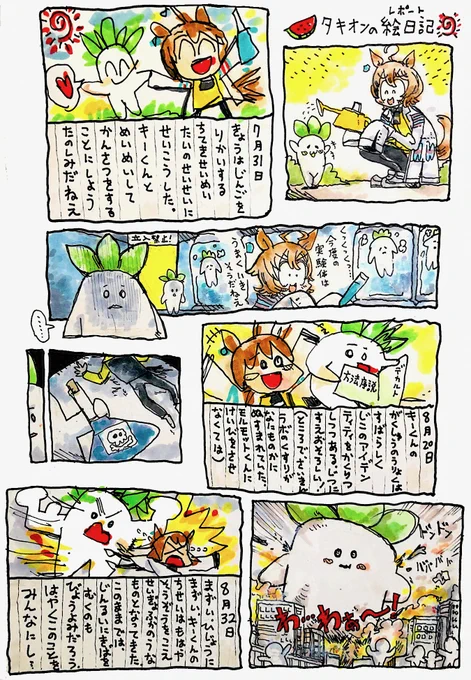 タキオンの絵日記
レポート
7月31日
きょうはじんごを
りかいする
ちてきせいめい
たいのせいせいに
せいこうした。
キーくんと
めいめいして
かんさつをする
ことにしよう
たのしみだねえ
くっくっくっ、
今度の
実験体は
うまくいき
そうだねえ
立入禁止!
デカルト
方法序説
8月20日
キーくんの
がくしゅうのうりょくは
すばらしく
じこのアイデン
ティティをかくりつ
しつつある。じつに
すえおそろしい!
(ところでさいきん
ラボのくすりが
なにものかに
ぬすまれていた。
モルモットくんに
けいびをさせ
なくては)
ドンドン
バババババ
わ…わぁ~!
8月32日
まずい、ひじょうに
まずい、キーくんの
ちせいはもはや
そうぞうをこえ
せいぎょふかのうな
ものとなってきた
このままでは、
じんるいにきばを
むくのも
じょうよみだろう
はやくこのことを
みんなにし…